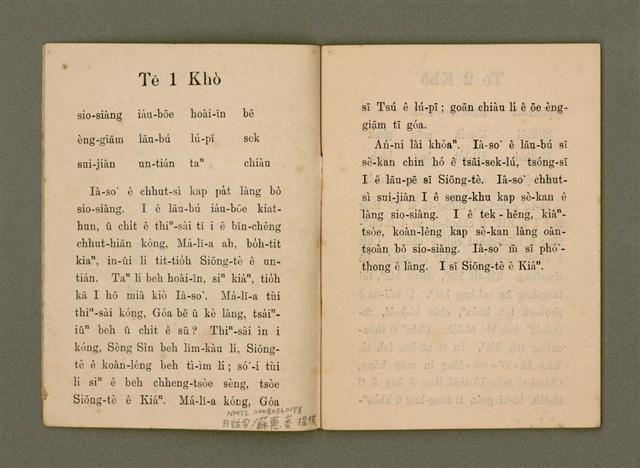 Tē 1 Khò
sio-siàng iáu-bōe hoài-īn bē
èng-giām lāu-bú lú-pī sek
sui-jiàn un-tián taⁿ chiàu
Ià-so͘ ê chhut-sì kap pa̍t làng bô
sio-siāng. I ê lāu-bú iáu-bōe kiat-
hun, ū chi̍t ê thiⁿ-sài tī i ê bīn-chêng
chhut-hiān kóng, Má-lī-a ah, bo̍h-tit
kiaⁿ, in-ūi lí tit-tio̍h Siōng-tè ê un-
tián. Taⁿ lí beh hoài-īn, siⁿ kiáⁿ, tio̍h
kā I hō miâ kiò Ià-so͘. Má-lī-a tùi
thiⁿ-sài kóng, Góa bē ū kè làng, tsáiⁿ-
iūⁿ beh ū chit ê sū? Thiⁿ-sài ìn i
kóng, Sèng Sîn beh lìm-kàu lí, Siōng-
tè ê koân-lêng beh tì-ìm lí; só͘-í tùi
lí siⁿ ê beh chheng-tsòe sèng, tsòe
Siōng-tè ê Kiáⁿ. Má-lī-a kóng, Góa
NMTL 20080360178
白話字/蘇憲
sī Tsú ê lú-pī; goān chiàu lí ê ōe èng-
giām tī góa.
Án-ni lâi khòaⁿ. Ià-so͘ ê lāu-bú sī
sè-kan chin hó ê tsāi-sek-lú, tsóng-sī
I ê lāu-pē sī Siōng-tè. Ià-so͘ chhut-
sì sui-jiàn I ê seng-khu kap sè-kan ê
làng sio-siàng. I ê tek-hēng, kiâⁿ-
tsòe, koàn-lêng kap sè-kan làng oân-
tsoàn bô sio-siàng. Ià-so͘ m̄ sī phó͘-
thong ê làng. I sī Siōng-tè ê Kiáⁿ.